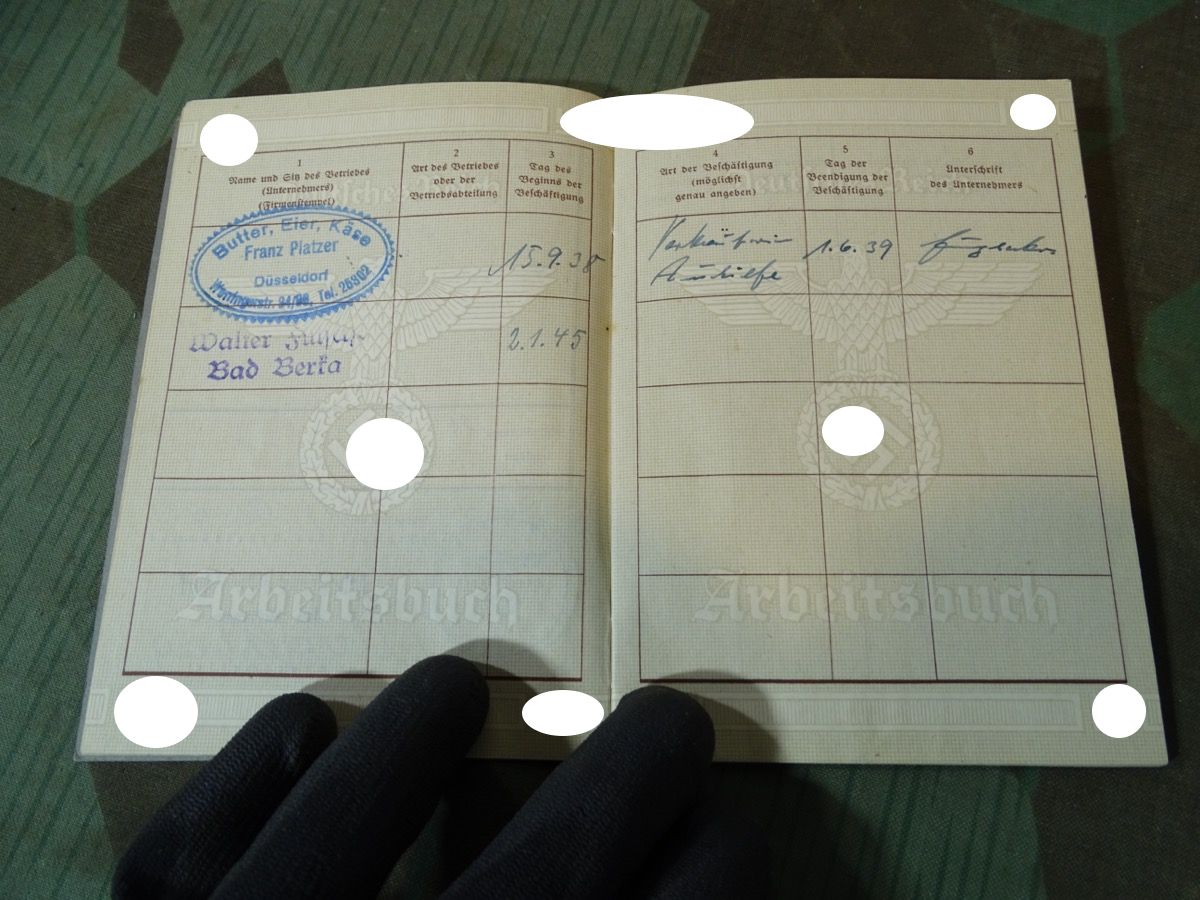 1
Name und Sitz des Betriebes
(Unternehmers)
(Firmenstempel)
2
Art des Betriebes
oder der
Betriebsabteilung
3
Tag des
Beginns der
Beschäftigung
Butter, Eier, Käse
Franz Platzer
Düsseldorf
94/96, Tel. 26302
15.9.38
Walter
Bad Berka
2.1.45
Arbeitsbuch
4
Art der Beschäftigung
(möglichst
genau angeben)
5
Tag der
Beendigung der
Beschäftigung
6
Unterschrift
des Unternehmers
Verkäuferin
Aushilfe
1.6.39
Arbeitsbuch